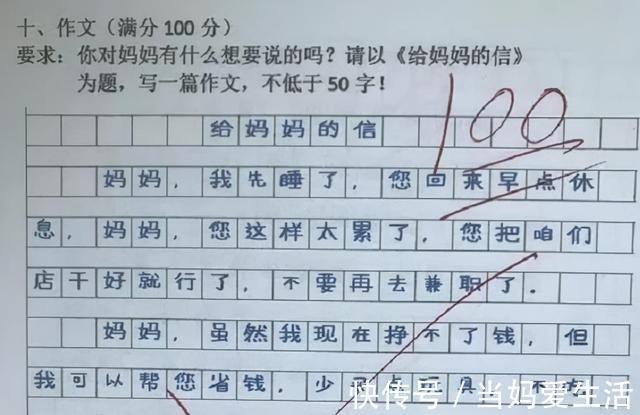 十、作文（满分 100 分）
要求：你对妈妈有什么想要说的吗？请以《给妈妈的信》
为题，写一篇作文，不低于 50 字！
100
给妈妈的信
妈妈，我先睡了，您回来早点休
息，妈妈，您这样太累了，您把咱们
店干好就行了，不要再去兼职了.
妈妈，虽然我现在挣不了钱，但
我可以帮您省钱，少
快传号／当妈爱生活